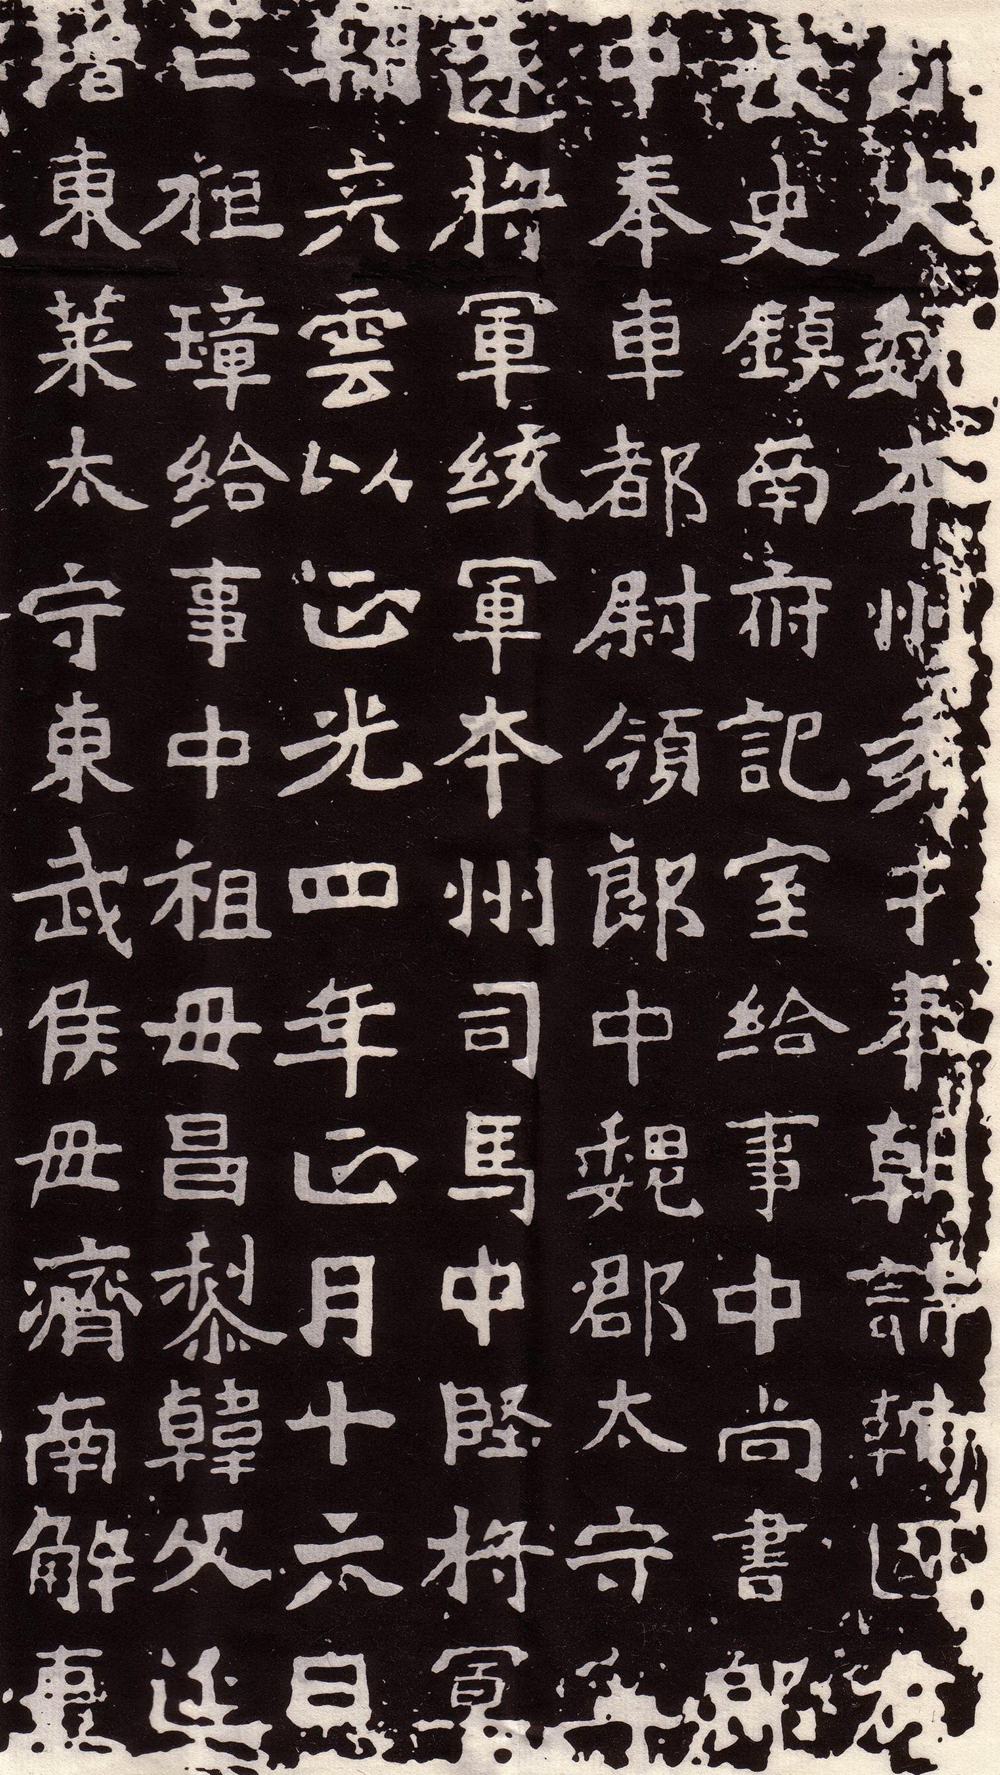 大魏本州秀才奉朝請輔國府
長史鎮南府記室給事中尚書郎
中奉車都尉領郎中魏郡太守寧
遠將軍統軍本州司馬中堅將軍
鞠彦雲以正光四年正月十六日
亡祖璋給事中祖母昌黎韓父延
增東萊太守東武侯母濟南解妻